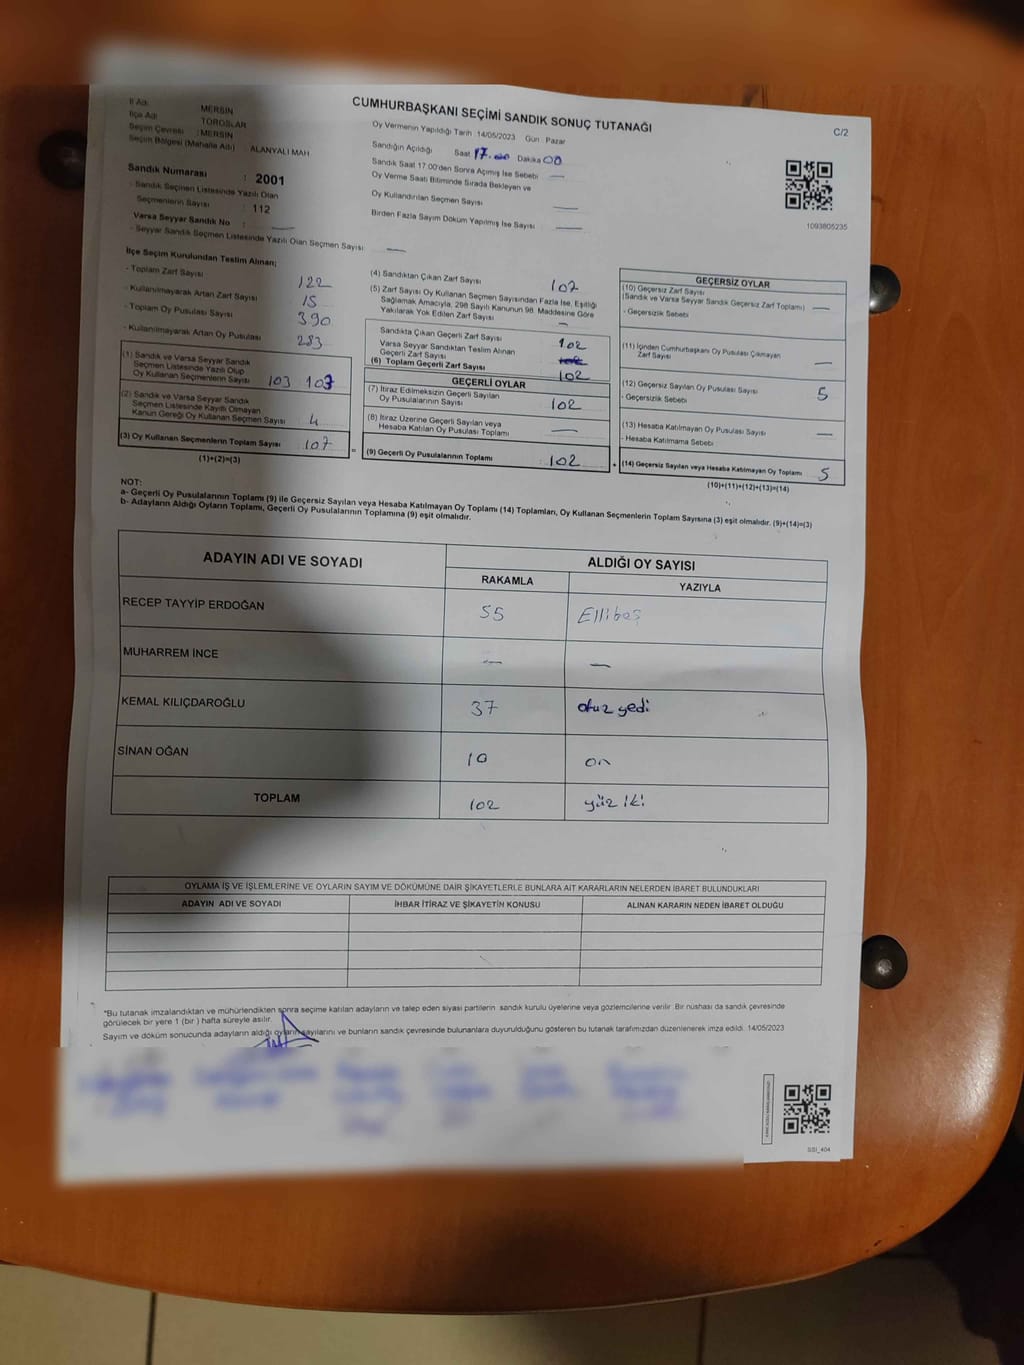 CUMHURBAŞKANI SEÇİMİ SANDIK SONUÇ TUTANAĞI
C/2
İl Adı : MERSİN
İlçe Adı : TOROSLAR
Seçim Çevresi : MERSİN
Seçim Bölgesi (Mahalle Adı) : ALANYALI MAH
Sandık Numarası : 2001
- Sandık Seçmen Listesinde Yazılı Olan
Seçmenlerin Sayısı : 112
Varsa Seyyar Sandık No :
- Seyyar Sandık Seçmen Listesinde Yazılı Olan Seçmen Sayısı —
Oy Vermenin Yapıldığı Tarih : 14/05/2023 Gün : Pazar
Sandığın Açıldığı Saat 17.00 Dakika 00
Sandık Saat 17.00'den Sonra Açmış İse Sebebi —
Oy Verme Saati Bitiminde Sırada Bekleyen ve
Oy Kullandırılan Seçmen Sayısı —
Birden Fazla Sayım Döküm Yapılmış İse Sayısı —
1093805235
İlçe Seçim Kurulundan Teslim Alınan;
- Toplam Zarf Sayısı 122
- Kullanılmayarak Artan Zarf Sayısı 15
- Toplam Oy Pusulası Sayısı 390
- Kullanılmayarak Artan Oy Pusulası 283
(1) Sandık ve Varsa Seyyar Sandık
Seçmen Listesinde Yazılı Olup
Oy Kullanan Seçmenlerin Sayısı 103 107
(2) Sandık ve Varsa Seyyar Sandık
Seçmen Listesinde Kayıtlı Olmayan
Kanun Gereği Oy Kullanan Seçmen Sayısı 4
(3) Oy Kullanan Seçmenlerin Toplam Sayısı 107
(1)+(2)=(3)
(4) Sandıktan Çıkan Zarf Sayısı 107
(5) Zarf Sayısı Oy Kullanan Seçmen Sayısından Fazla İse, Eşitliği
Sağlamak Amacıyla, 298 Sayılı Kanunun 98. Maddesine Göre
Yakılarak Yok Edilen Zarf Sayısı —
Sandıkta Çıkan Geçerli Zarf Sayısı 102
Varsa Seyyar Sandıktan Teslim Alınan
Geçerli Zarf Sayısı
(6) Toplam Geçerli Zarf Sayısı 102
GEÇERLİ OYLAR
(7) İtiraz Edilmeksizin Geçerli Sayılan
Oy Pusulalarının Sayısı 102
(8) İtiraz Üzerine Geçerli Sayılan veya
Hesaba Katılan Oy Pusulası Toplamı —
(9) Geçerli Oy Pusulalarının Toplamı 102
GEÇERSİZ OYLAR
(10) Geçersiz Zarf Sayısı
(Sandık ve Varsa Seyyar Sandık Geçersiz Zarf Toplamı) —
- Geçersizlik Sebebi
(11) İçinden Cumhurbaşkanı Oy Pusulası Çıkmayan
Zarf Sayısı —
(12) Geçersiz Sayılan Oy Pusulası Sayısı 5
- Geçersizlik Sebebi
(13) Hesaba Katılmayan Oy Pusulası Sayısı —
- Hesaba Katılmama Sebebi
(14) Geçersiz Sayılan veya Hesaba Katılmayan Oy Toplamı 5
(10)+(11)+(12)+(13)=(14)
NOT:
a- Geçerli Oy Pusulalarının Toplamı (9) ile Geçersiz Sayılan veya Hesaba Katılmayan Oy Toplamı (14) Toplamları, Oy Kullanan Seçmenlerin Toplam Sayısına (3) eşit olmalıdır. (9)+(14)=(3)
b- Adayların Aldığı Oyların Toplamı, Geçerli Oy Pusulalarının Toplamına (9) eşit olmalıdır.
ADAYIN ADI VE SOYADI ALDIĞI OY SAYISI
RAKAMLA YAZIYLA
RECEP TAYYİP ERDOĞAN 55 Ellibeş
MUHARREM İNCE — —
KEMAL KILIÇDAROĞLU 37 otuz yedi
SİNAN OĞAN 10 on
TOPLAM 102 yüz iki
OYLAMA İŞ VE İŞLEMLERİNE VE OYLARIN SAYIM VE DÖKÜMÜNE DAİR ŞİKAYETLERLE BUNLARA AİT KARARLARIN NELERDEN İBARET BULUNDUKLARI
ADAYIN ADI VE SOYADI İHBAR İTİRAZ VE ŞİKAYETİN KONUSU ALINAN KARARIN NEDEN İBARET OLDUĞU
*Bu tutanak imzalandıktan ve mühürlendikten sonra seçime katılan adayların ve talep eden siyasi partilerin sandık kurulu üyelerine veya gözlemcilerine verilir. Bir nüshası da sandık çevresinde
görülecek bir yere 1 (bir) hafta süreyle asılır.
Sayım ve döküm sonucunda adayların aldığı oyların sayılarını ve bunların sandık çevresinde bulunanlara duyurulduğunu gösteren bu tutanak tarafımızdan düzenlenerek imza edildi. 14/05/2023
SSI_404